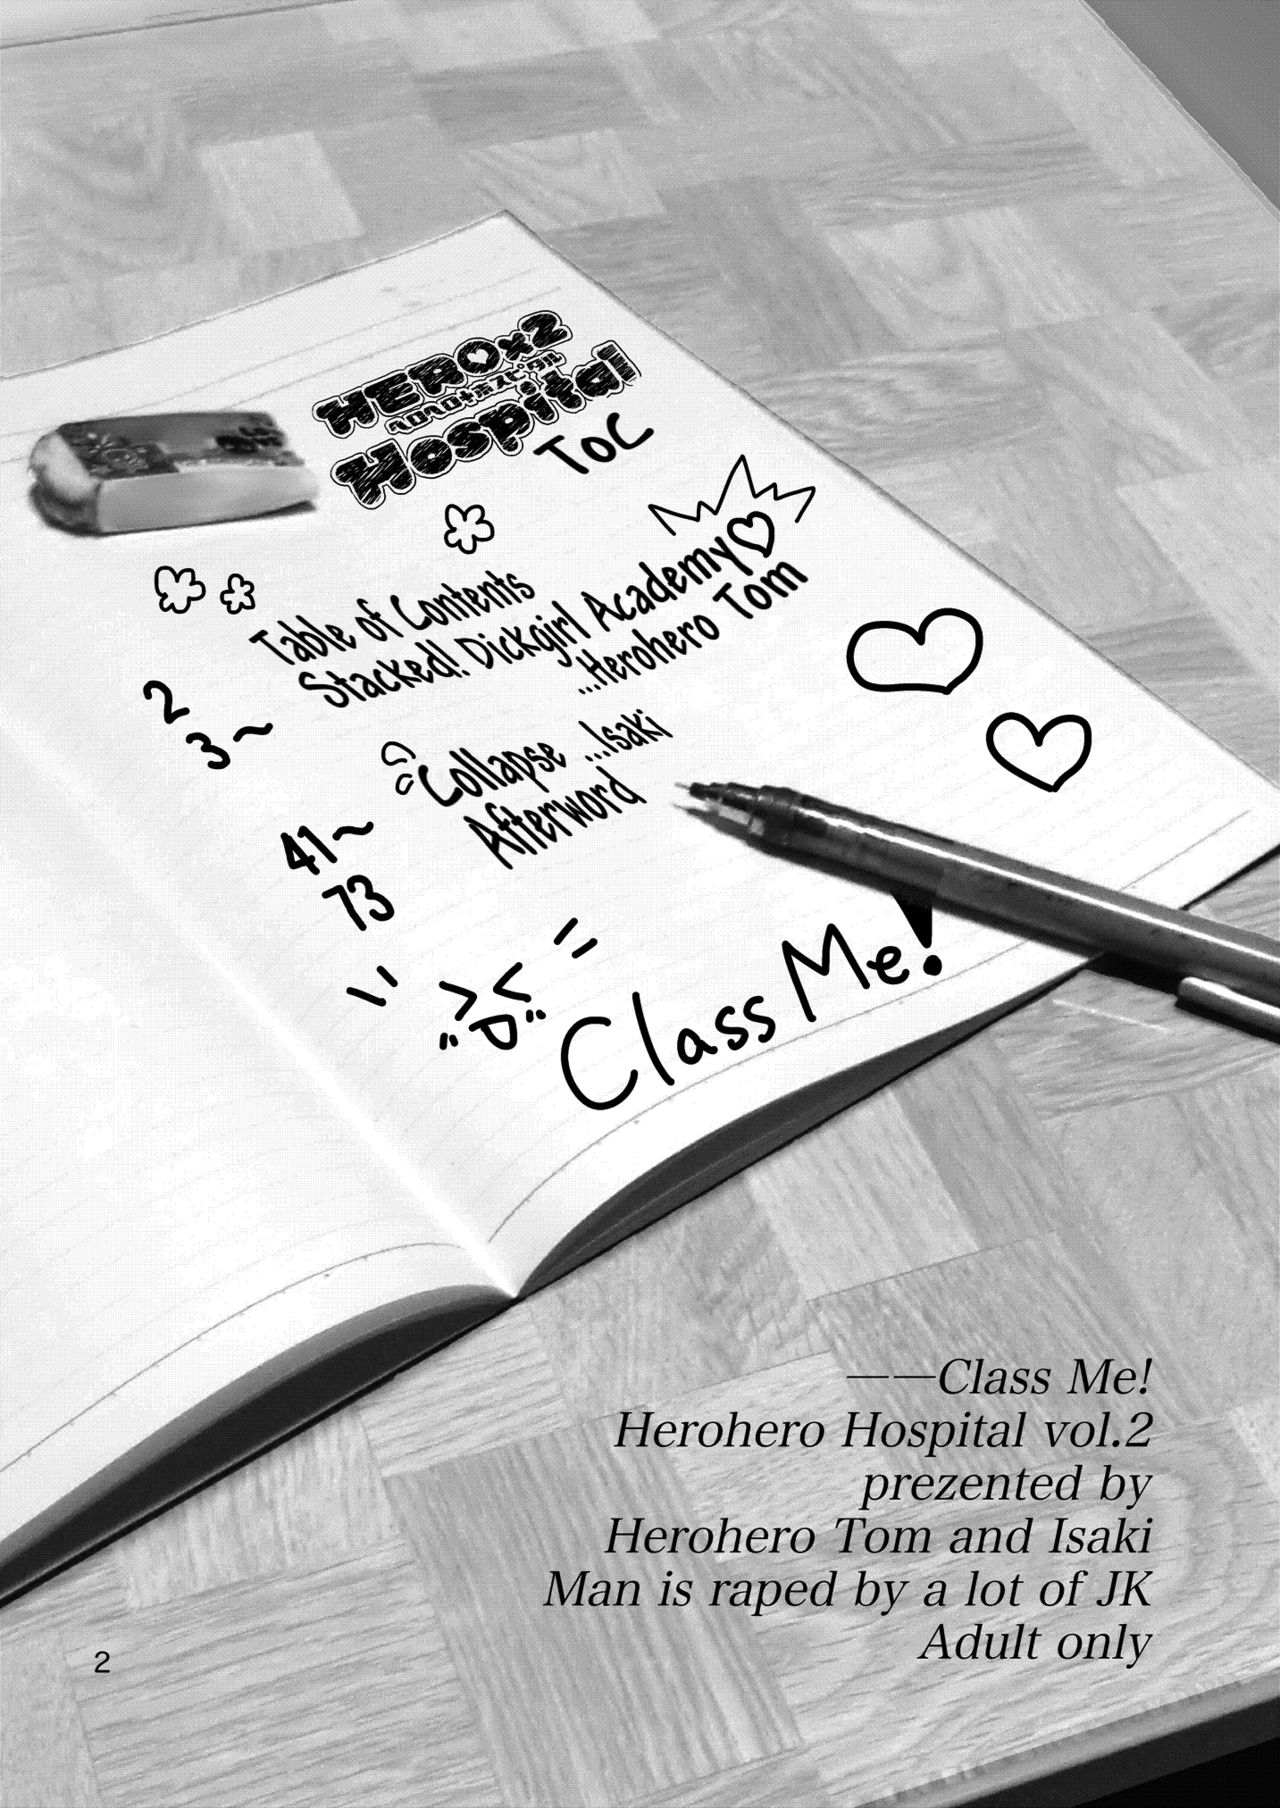 HERO×2
ヘロヘロ+ホスピタル
Hospital
ToC
2 Table of Contents
3～ Stacked! Dickgirl Academy♡
...Herohero Tom
41～ Collapse ...Isaki
73 Afterword
Class Me!
——Class Me!
Herohero Hospital vol.2
prezented by
Herohero Tom and Isaki
Man is raped by a lot of JK
Adult only
2